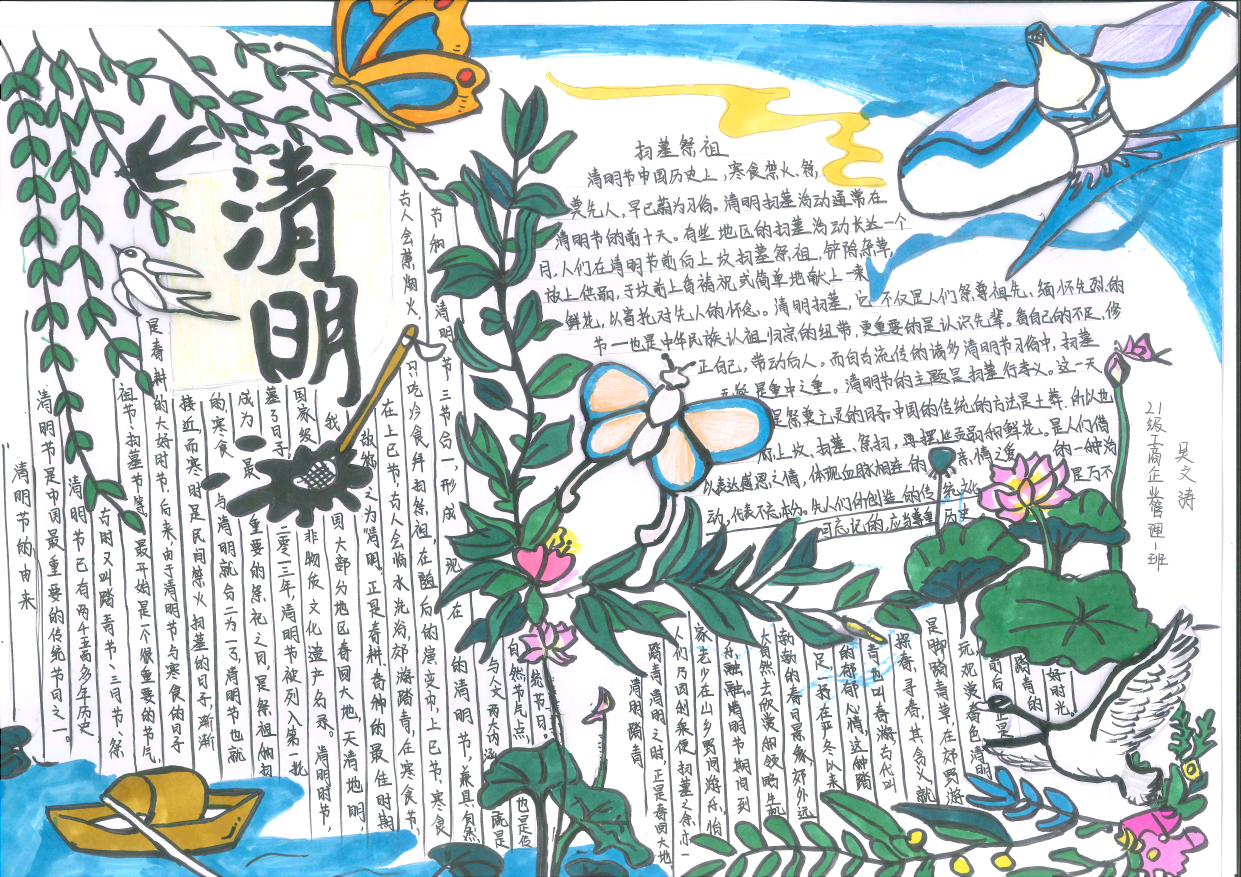 清明
清明节的由来
清明节是中国最重要的传统节日之一。
清明节已有两千五百多年历史
古时又叫踏青节、三月节、祭
祖节、扫墓节等。最开始是一个很重要的节气，
是春耕的大好时节，后来，由于清明节与寒食的日子
接近，而寒明是民间禁火扫墓的日子，渐渐
的，寒食与清明就合二为一了，清明节也就
成为最重要的祭祀之日，是祭祖和扫
墓的日子。二零一三年，清明节被列入第一批
国家级非物质文化遗产名录。清明时节，
我国大部分地区春回大地，天清地明，
故称之为“清明”。正是春耕、春种的最佳时期
在上巳节，古人会临水洗浴，郊游踏青，在寒食节，
古人会禁烟火，只吃冷食并扫祭祖，在随后的演变中，上巳节、寒食
节和清明节三节合一，形成现在
的清明节，兼具自然
与人文两大内涵既是
自然节气点，也是传
统节日。
扫墓祭祖
清明节中国历史上，寒食禁火，祭
奠先人，早已蔚为习俗。清明扫墓活动通常在
清明节的前十天。有些地区的扫墓活动长达一个
月，人们在清明节前后上坟扫墓祭祖，铲除杂草，
放上供品，于坟前上香祷祝或简单地献上一束
鲜花，以寄托对先人的怀念。清明扫墓，它不仅是人们祭奠祖先、缅怀先烈的
节一也是中华民族认祖归宗的纽带，更重要的是认识先辈。看自己的不足，修
正自己，带动后人。而自古流传的诸多清明节习俗中，扫墓
是重中之重。清明节的主题是扫墓行孝义。这一天
是祭奠亡灵的日子。中国的传统的方法是土葬，所以也
上坟，扫墓，祭扫，再摆些贡品和鲜花。是人们借
以表达感恩之情，体现血脉相连的亲情之重的一种活
动，代表不忘本分。先人们所创造的传统文化是万不
可忘记的，应当尊重历史
清明踏青
踏青，清明之时，正是春回大地
人们乃因利乘便扫墓之余亦一
家老少在山乡野间游乐，怡
乐融融。清明节期间到
大自然去欣赏和领略生机
勃勃的春日景象郊外远
足，抒在严冬以来
的郁郁心情，这种踏
青也叫春游古代叫
探春、寻春，其含义，就
是脚踏青草，在郊野游
玩，观赏春色清明
前后正是
踏青的
好时光。
21级工商企业管理一班
吴文涛